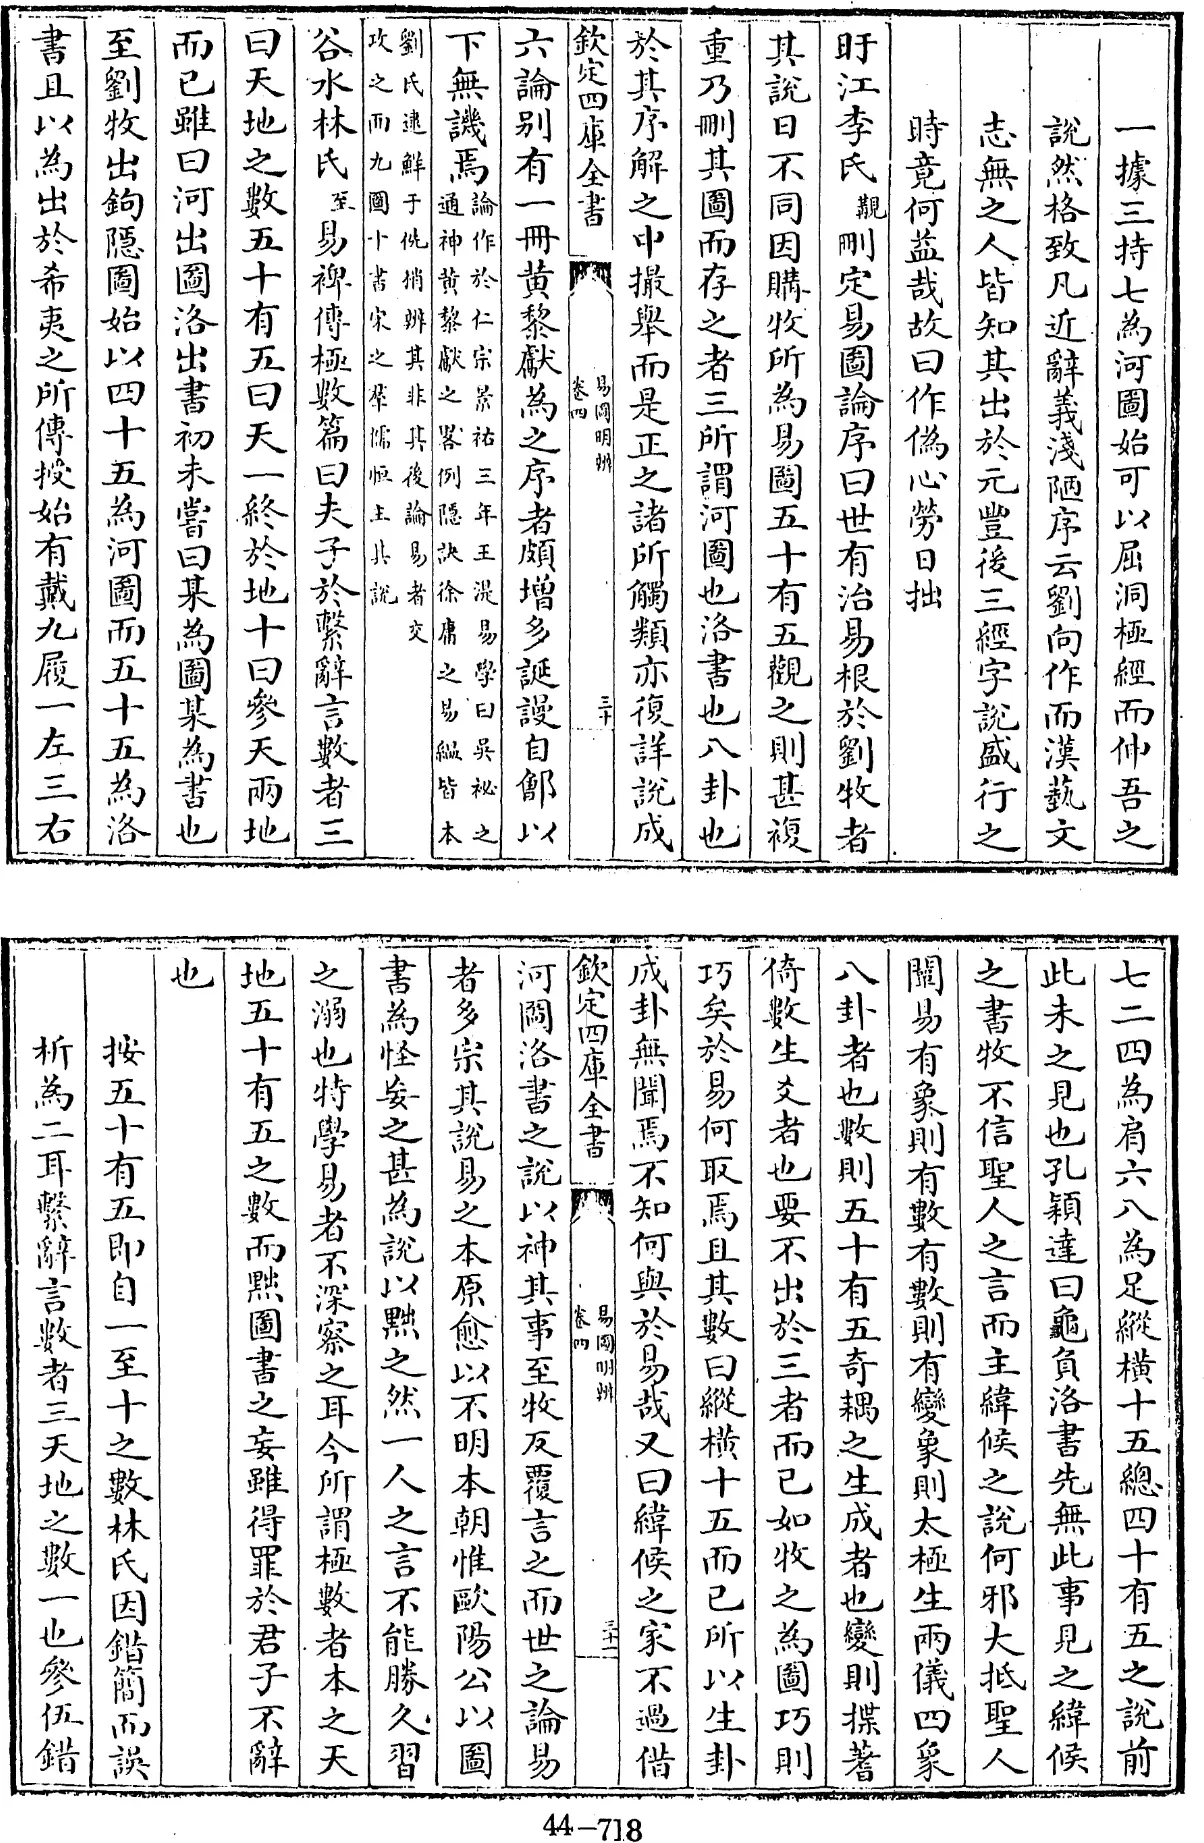 一據三持七為河圖始可以屈洞極經而伸吾之
說然格致凡近辭義淺陋序云劉向作而漢藝文
志無之人皆知其出於元豐後三經字說盛行之
時竟何益哉故曰作偽心勞日拙
盱江李氏覯刪定易圖論序曰世有治易根於劉牧者
其說日不同因購牧所為易圖五十有五觀之則甚複
重乃刪其圖而存之者三所謂河圖也洛書也八卦也
於其序解之中撮舉而是正之諸所觸類亦復詳說成
欽定四庫全書
易圖明辨
卷四
三十
六論别有一冊黄黎獻為之序者頗增多誕謾自鄶以
下無譏焉論作於仁宗景祐三年王湜易學曰吳祕之
通神黄黎獻之畧例隱訣徐庸之易緼皆本
劉氏逮鮮于侁稍辨其非其後論易者交
攻之而九圖十書宋之羣儒恒主其說
谷水林氏至易裨傳極數篇曰夫子於繫辭言數者三
曰天地之數五十有五曰天一終於地十曰參天兩地
而已雖曰河出圖洛出書初未嘗曰某為圖某為書也
至劉牧出鉤隱圖始以四十五為河圖而五十五為洛
書且以為出於希夷之所傳授始有戴九履一左三右
七二四為肩六八為足縱橫十五總四十有五之說前
此未之見也孔穎達曰龜負洛書先無此事見之緯候
之書牧不信聖人之言而主緯候之說何邪大抵聖人
闡易有象則有數有數則有變象則太極生兩儀四象
八卦者也數則五十有五奇耦之生成者也變則揲蓍
倚數生爻者也要不出於三者而已如牧之為圖巧則
巧矣於易何取焉且其數曰縱橫十五而已所以生卦
成卦無聞焉不知何與於易哉又曰緯候之家不過借
欽定四庫全書
易圖明辨
卷四
三十一
河圖洛書之說以神其事至牧反覆言之而世之論易
者多宗其說易之本原愈以不明本朝惟歐陽公以圖
書為怪妄之甚為說以黜之然一人之言不能勝久習
之溺也特學易者不深察之耳今所謂極數者本之天
地五十有五之數而黜圖書之妄雖得罪於君子不辭
也
按五十有五即自一至十之數林氏因錯簡而誤
析為二耳繫辭言數者三天地之數一也參伍錯
44-718